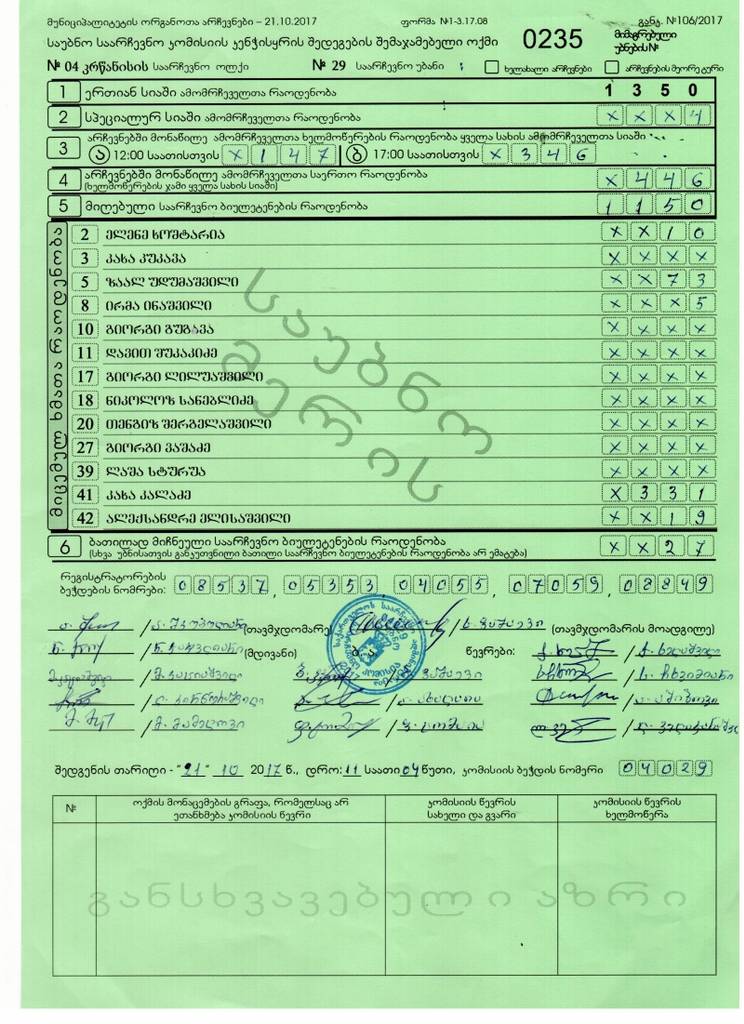 მუნიციპალიტეტის ორგანოთა არჩევნები – 21.10.2017 ფორმა №1-3.17.08 განკ. №106/2017
საუბნო საარჩევნო კომისიის კენჭისყრის შედეგების შემაჯამებელი ოქმი 0235 მიმაგრებული უბნების №
№ 04 კრწანისის საარჩევნო ოლქი № 29 საარჩევნო უბანი ხელახალი არჩევნები არჩევნების მეორე ტური
1 ერთიან სიაში ამომრჩეველთა რაოდენობა 1 3 5 0
2 სპეციალურ სიაში ამომრჩეველთა რაოდენობა x x x 4
3 არჩევნებში მონაწილე ამომრჩეველთა ხელმოწერების რაოდენობა ყველა სახის ამომრჩეველთა სიაში
ა 12:00 საათისთვის x 1 4 7 ბ 17:00 საათისთვის x 3 4 6
4 არჩევნებში მონაწილე ამომრჩეველთა საერთო რაოდენობა x 4 4 6
(ხელმოწერების ჯამი ყველა სახის სიაში)
5 მიღებული საარჩევნო ბიულეტენების რაოდენობა 1 1 5 0
მიცემულ ხმათა რაოდენობა
2 ელენე ხოშტარია x x 1 0
3 კახა კუკავა x x x x
5 ზაალ უდუმაშვილი x x 7 3
8 ირმა ინაშვილი x x x 5
10 გიორგი გუგავა x x x x
11 დავით შუკაკიძე x x x x
17 გიორგი ლილუაშვილი x x x x
18 ნიკოლოზ სანებლიძე x x x x
20 თენგიზ შერგელაშვილი x x x x
27 გიორგი ვაშაძე x x x x
39 ლაშა სტურუა x x x x
41 კახა კალაძე x 3 3 1
42 ალექსანდრე ელისაშვილი x x 1 9
საუბნო
მერის
6 ბათილად მიჩნეული საარჩევნო ბიულეტენების რაოდენობა x x 2 7
(სხვა უბნისათვის განკუთვნილი ბათილი საარჩევნო ბიულეტენების რაოდენობა არ ემატება)
რეგისტრატორების
ბეჭდების ნომრები: 08537, 05353, 04055, 07059, 08849
(თავმჯდომარე) (თავმჯდომარის მოადგილე)
(მდივანი) ბ.ა. წევრები:
შედგენის თარიღი - "21" 10 2017 წ., დრო: 11 საათი 04 წუთი, კომისიის ბეჭდის ნომერი 04029
№ ოქმის მონაცემების გრაფა, რომელსაც არ ეთანხმება კომისიის წევრი კომისიის წევრის სახელი და გვარი კომისიის წევრის ხელმოწერა
განსხვავებული აზრი